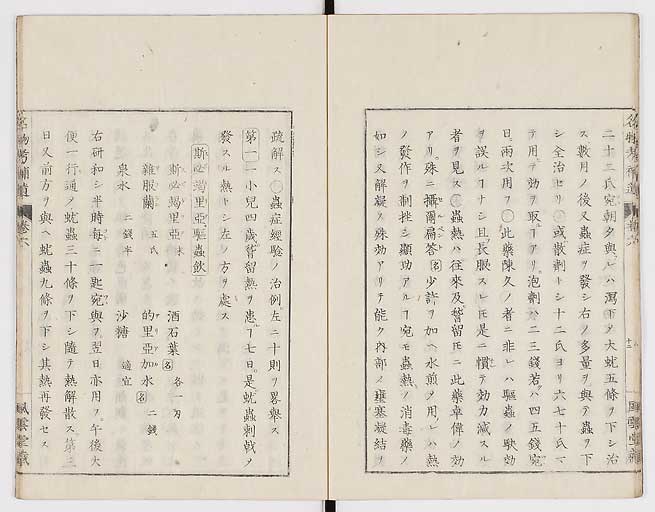 二十二氏宛朝夕與フレハ瀉下ノ大蚘五條ヲ下シ治
ス數月ノ後又蟲症ヲ發シ右ノ多量ヲ與テ蟲ヲ下
シ全治セリ○或散劑トシ十二氏ヨリ六七十氏マ
テ用テ効ヲ取アリ泡劑ハ二三錢若ハ四五錢宛
日兩次用フ○此藥陳久ノ者ニ非レハ驅蟲ノ駃効
ヲ誤ルコナシ且長服スレ𪜈是ニ慣テ効力減スル
者ヲ見ス○蟲熱ノ往來及稽留𪜈ニ此藥卓偉ノ効
アリ殊ニ攝爾扁答名少許ヲ加ヘ水煎ヲ用レハ熱
ノ發作ヲ制挫シ顯助アルフ宛モ蟲熱ノ消毒藥ノ
如シ又解凝ノ殊効アリテ能ク內部ノ壅塞凝結ヲ
疏解ス○蟲症經驗ノ治例左ニ十則ヲ畧舉ス
第一一小兒四歲稽留熱ヲ患フ七日是蚘蟲刺戟ヲ
發スル熱トシ左ノ方ヲ處ス
斯必竭里亞驅蟲飲
斯必竭里亞 酒石葉名 各一刃
雜腹蘭 五氏 的里亞加水名 二錢
泉水 二錢半 沙糖 適宜
右研和シ半時每ニ一匙宛與フ翌日亦用フ午後大
便一行通ノ蚘蟲三十條ヲ下シ隨テ熱解散ス第三
日又前方ヲ與ヘ蚘蟲九條ヲ下シ其熱再發セス
名物考補遺 卷六
風雲堂藏